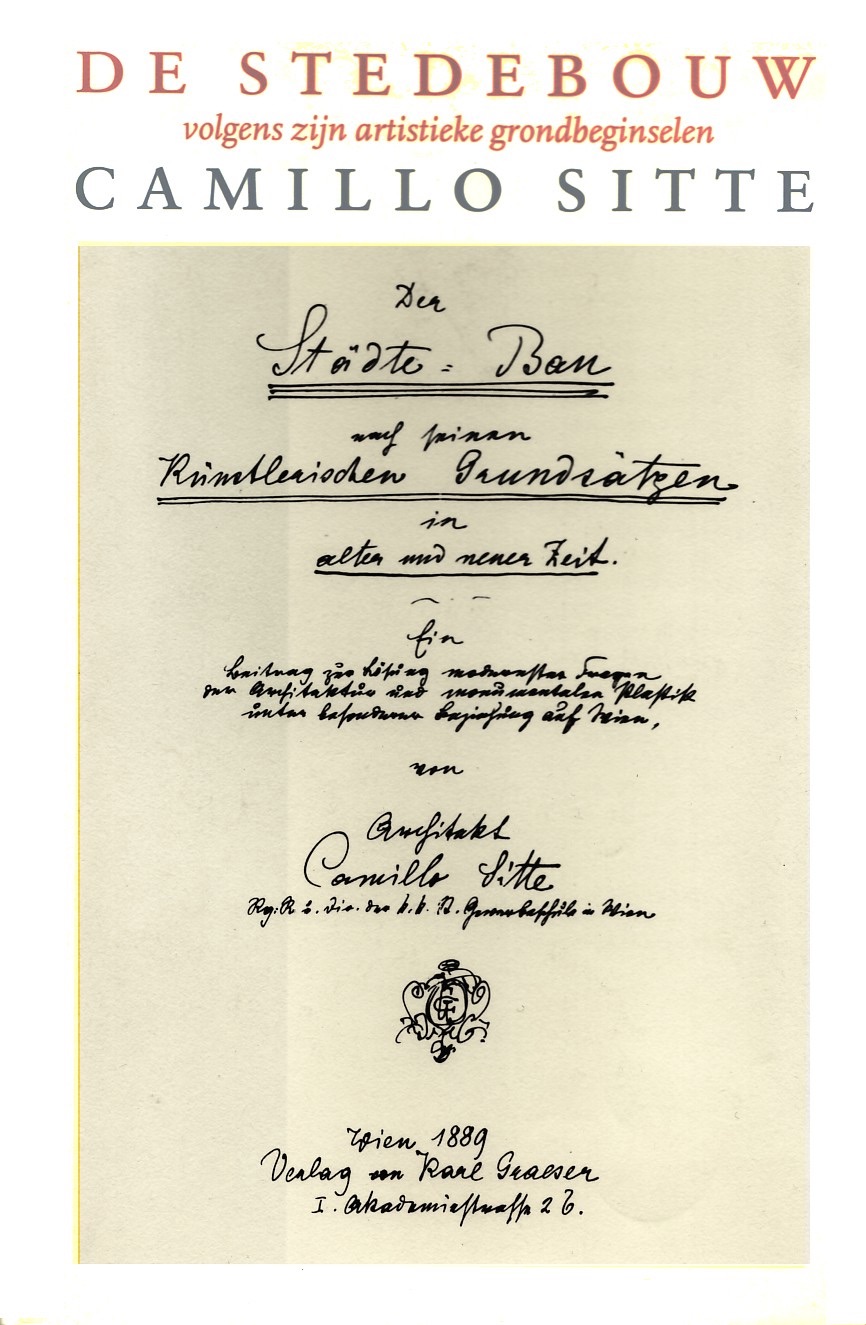 DE STEDEBOUW
volgens zijn artistieke grondbeginselen
CAMILLO SITTE
Der
Städte = Bau
nach seinen
Künstlerischen Grundsätzen
in
alter und neuer Zeit.
Ein
Beitrag zur Lösung modernster Fragen
der Architektur und monumentalen Plastik
unter besonderer Beziehung auf Wien,
von
Architekt
Camillo Sitte
Rg: R u. Dir. der k. k. St. Gewerbeschule in Wien
Wien 1889
Verlag von Karl Graeser
I. Akademiestrasse 26.